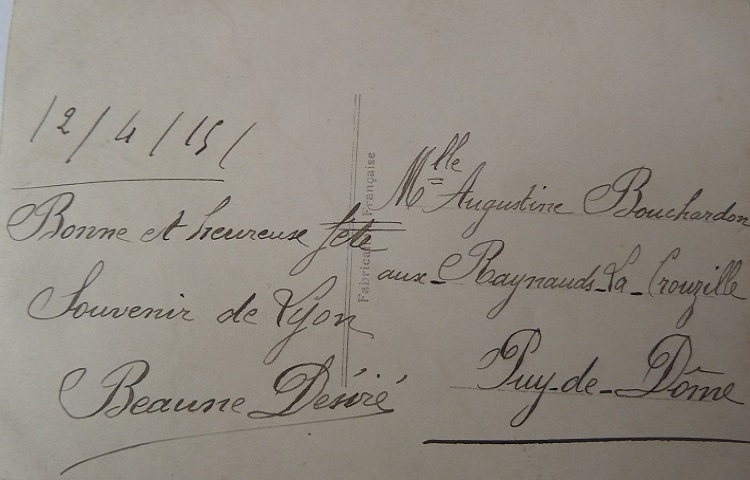 12/4/15/
Bonne et heureuse fête
Souvenir de Lyon
Beaune Désiré
Fabrication Française
Mlle Augustine Bouchardon
aux-Raynauds-La-Crouzille
Puy-de-Dôme